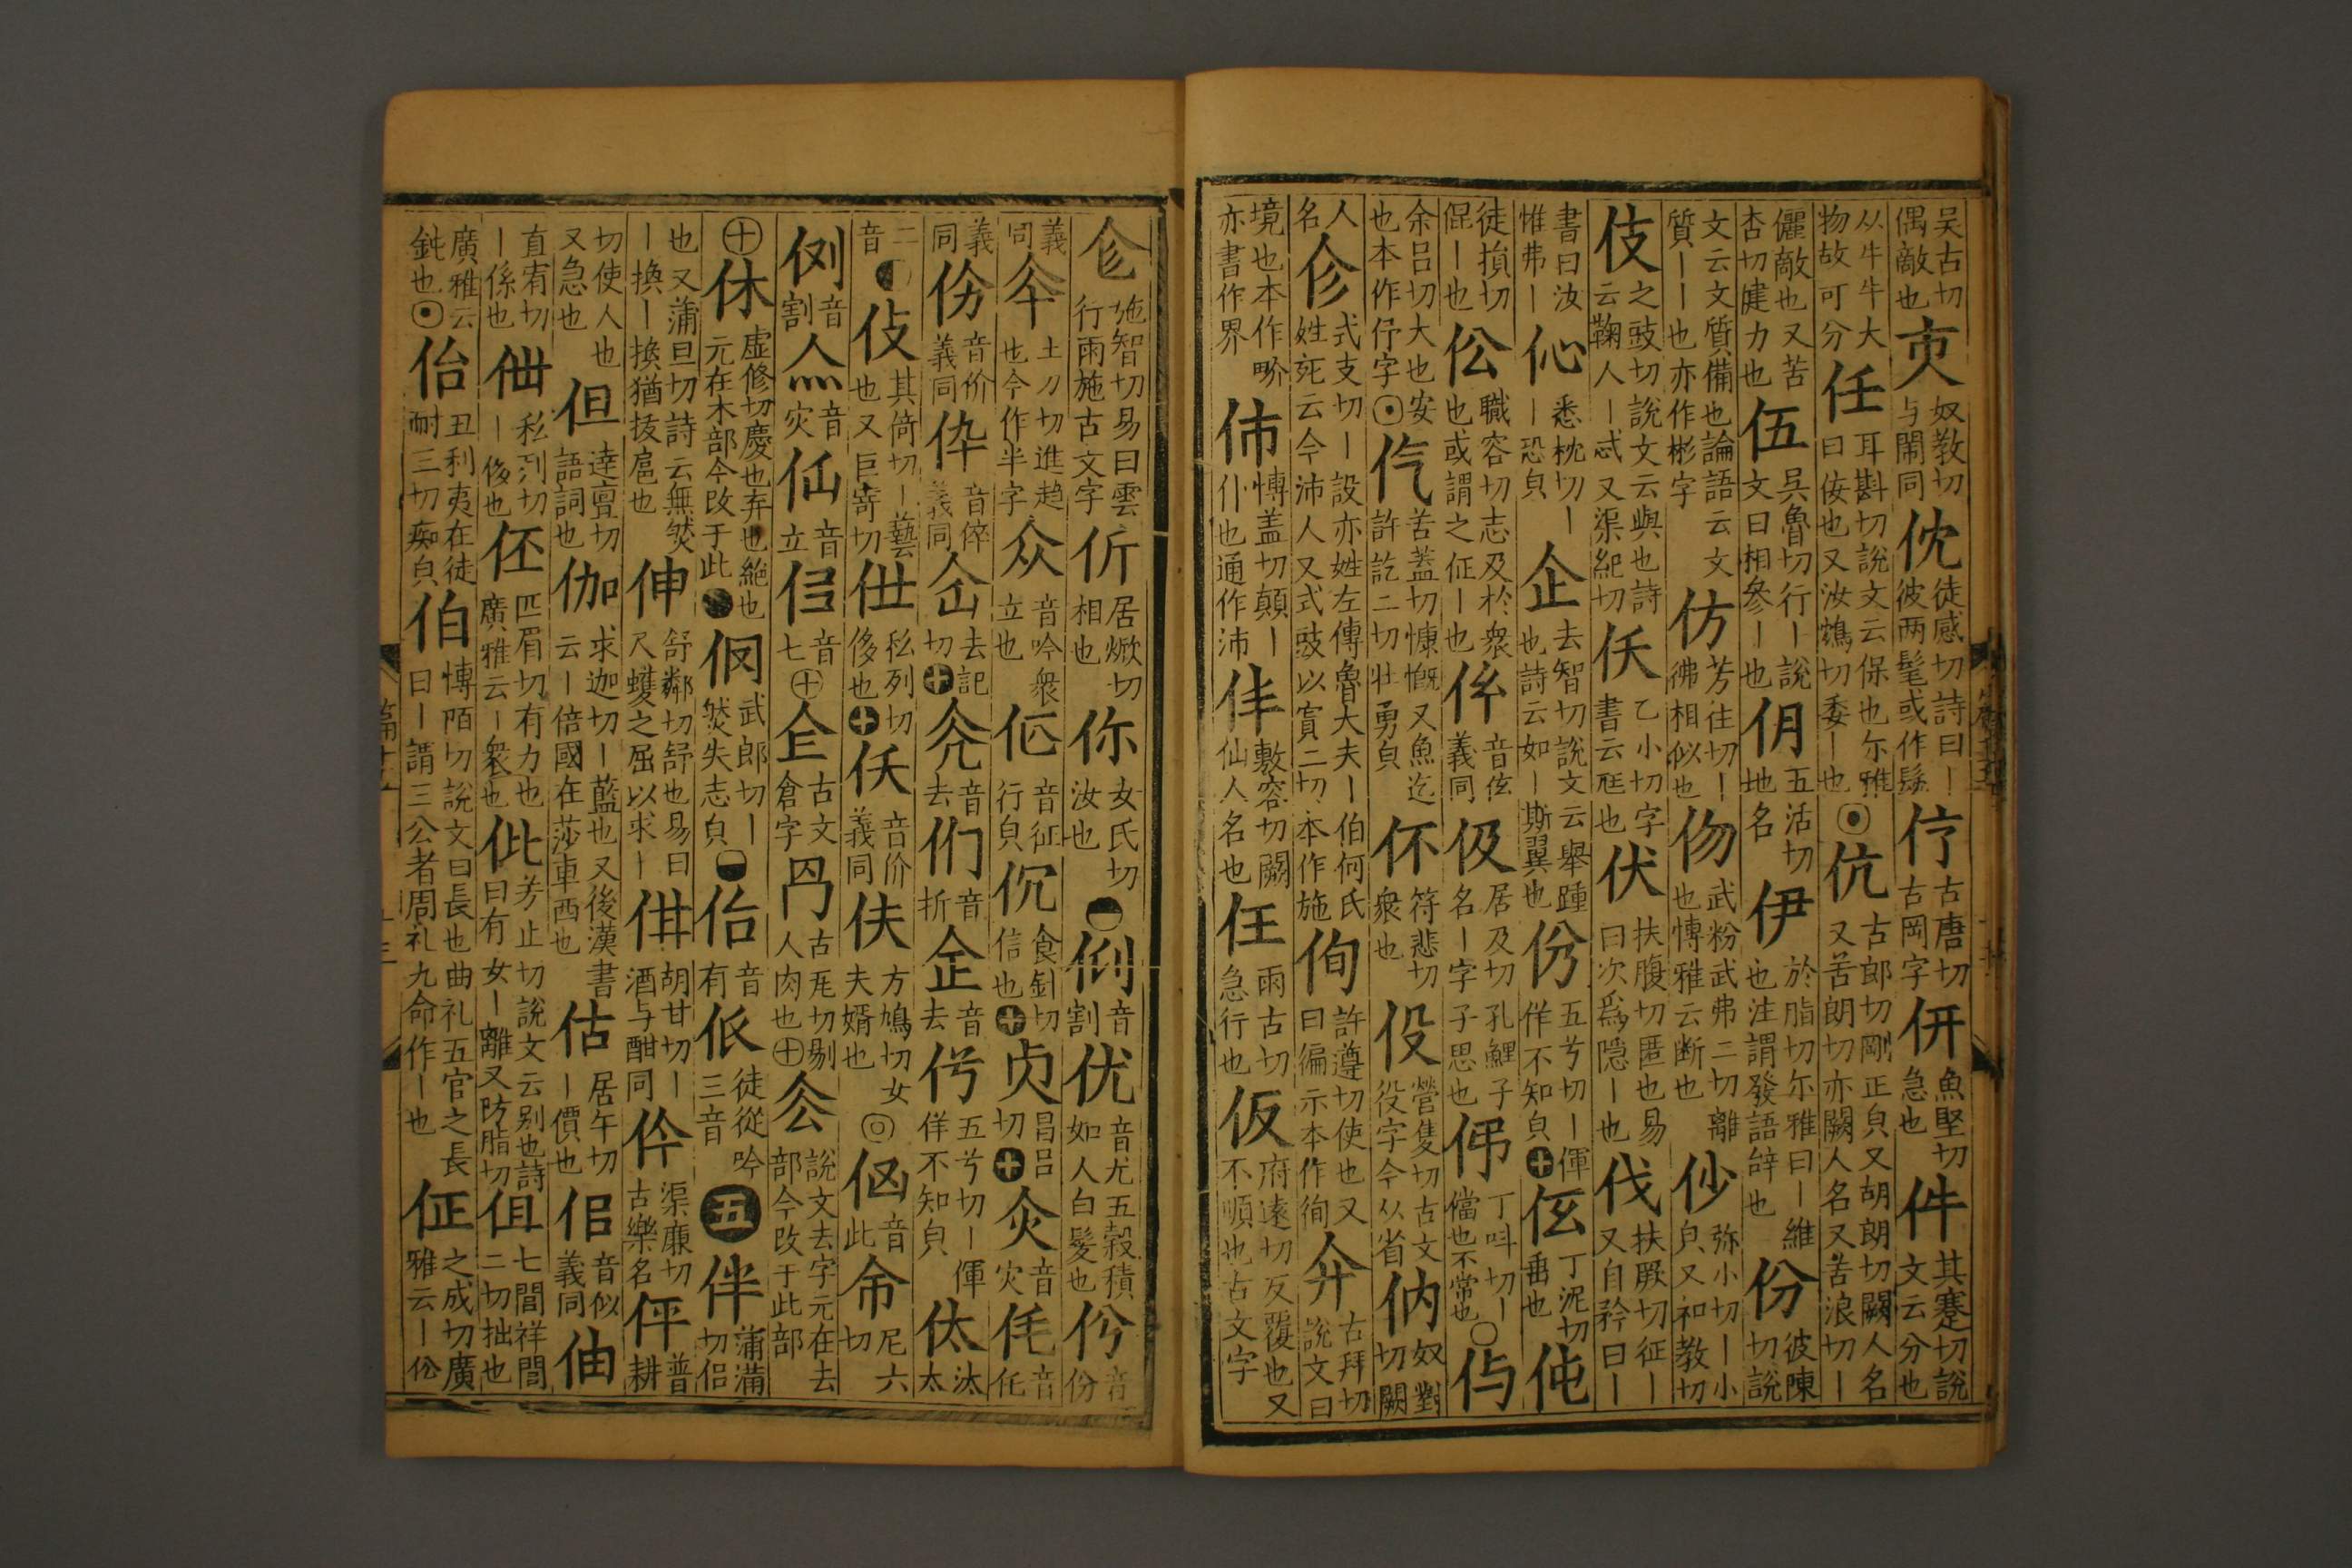 吴古切偶敵也 奴教切与閙同 㐽徒感切詩曰丨彼两髦或作髧 古唐切古岡字 㐼魚堅切急也 件其蹇切說文云分也
从牛牛大物故可分 任耳斟切說文云保也尔雅曰侫也又汝鴆切委丨也 伉古郎切剛正皃又胡朗切闕人名又苦朗切亦闕人名又苦浪切丨
儷敵也又苦杏切健力也 伍吳魯切行丨說文曰相參丨也 㐳五活切地名 伊於脂切尔雅曰丨維也注謂發語辝也 份彼陳切說
文云文質備也論語云文質丨丨也亦作彬字 仿芳往切丨彿相似也 伆武粉武弗二切離也博雅云断也 仯弥小切丨小皃又初教切
伎之豉切說文云與也詩云鞫人丨忒又渠紀切 仸乙小切字書云尫也 伏扶腹切匿也易曰次爲隱丨也 伐扶厥切征丨又自矜曰丨
書曰汝惟弗丨 伈悉枕切丨丨恐皃 企去智切說文云舉踵也詩云如丨斯翼也 㑃五兮切丨倱作不知皃 丁泥切垂也 伅
徒損切倱丨也 伀職容切志及於衆也或謂之佂丨也 音伭義同 伋居及切孔鯉子名丨字子思也 丁叫切丨儅也不常也 㑄
余吕切大也安也本作伃字 苦蓋切慷慨又魚迄許訖二切壮勇皃 伓符悲切衆也 伇營隻切古文役字今从省 㐻奴對切闕
人名 㐱式支切丨設亦姓左傳魯大夫丨伯何氏姓死云今沛人又式豉以寘二切本作施 㐸許遵切使也又曰徧示本作徇 㝏古拜切說文曰
境也本作畍亦書作界 伂博盖切顛丨仆也通作沛 仹敷容切闕仙人名也 雨古切急行也 仮府遠切反覆也又不順也古文字
施智切易曰雲行雨施古文字 居焮切相也 你女氏切汝也 音割 优音尤五穀積如人白髮也 㑃音份
義同 土刀切進趋也今作半字 众音吟衆立也 音征行皃 食釗切信也 昌吕切 音灾 㐌音仛
義同 㑂音价義同 伜音倅義同 去記切 音去 们音折 音去 五兮切丨倱佯不知皃 㑀汰太
二音 伎其倚切丨藝也又巨寄切 私列切侈也 仸音价義同 伕方鳩切女夫婿也 音此 㑏尼六切
例音割 音灾 仚音立 音七 古文倉字 古厐切剔人肉也 說文去字元在去部今改于此部
休虚修切慶也弃也絶也元在木部今改于此 武郎切丨㷿失志皃 佁音有 徒從吟三音 五 伴蒲滿切侣
也又蒲旦切詩云無㷿丨換丨換猶拔扈也 伸舒鄰切舒也易曰尺蠖之屈以求丨 佄胡甘切丨酒与酣同 伶渠廉切古樂名 伻普耕
切使人也又急也 但達亶切語詞也 伽求迦切丨藍也又後漢書云丨倍國在莎車西也 估居午切丨價也 佀音似義同 伷
直宥切丨係也 伳私列切丨俀也 伾匹眉切有力也廣雅云丨衆也 仳芳止切說文云别也詩曰有女丨離又防脂切 伹七閭祥閭二切拙也
廣雅云鈍也 佁丑利夷在徒耐三切痴皃 伯博陌切說文曰長也曲礼五官之長曰丨謂三公者周礼九命作丨也 佂之成切廣雅云丨伀